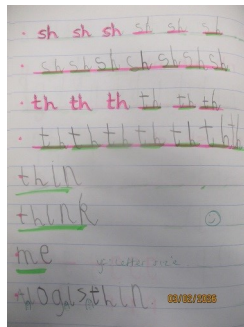 • sh sh sh sh sh sh
• sh sh sh sh sh sh sh
• th th th th th th
• th th th th th th th
thin
think
me
thogsthin.
03/02/2026